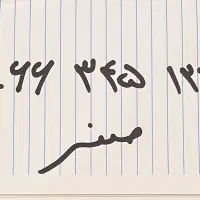 ۶۶ ۳۴۵ ۱۳
صفر